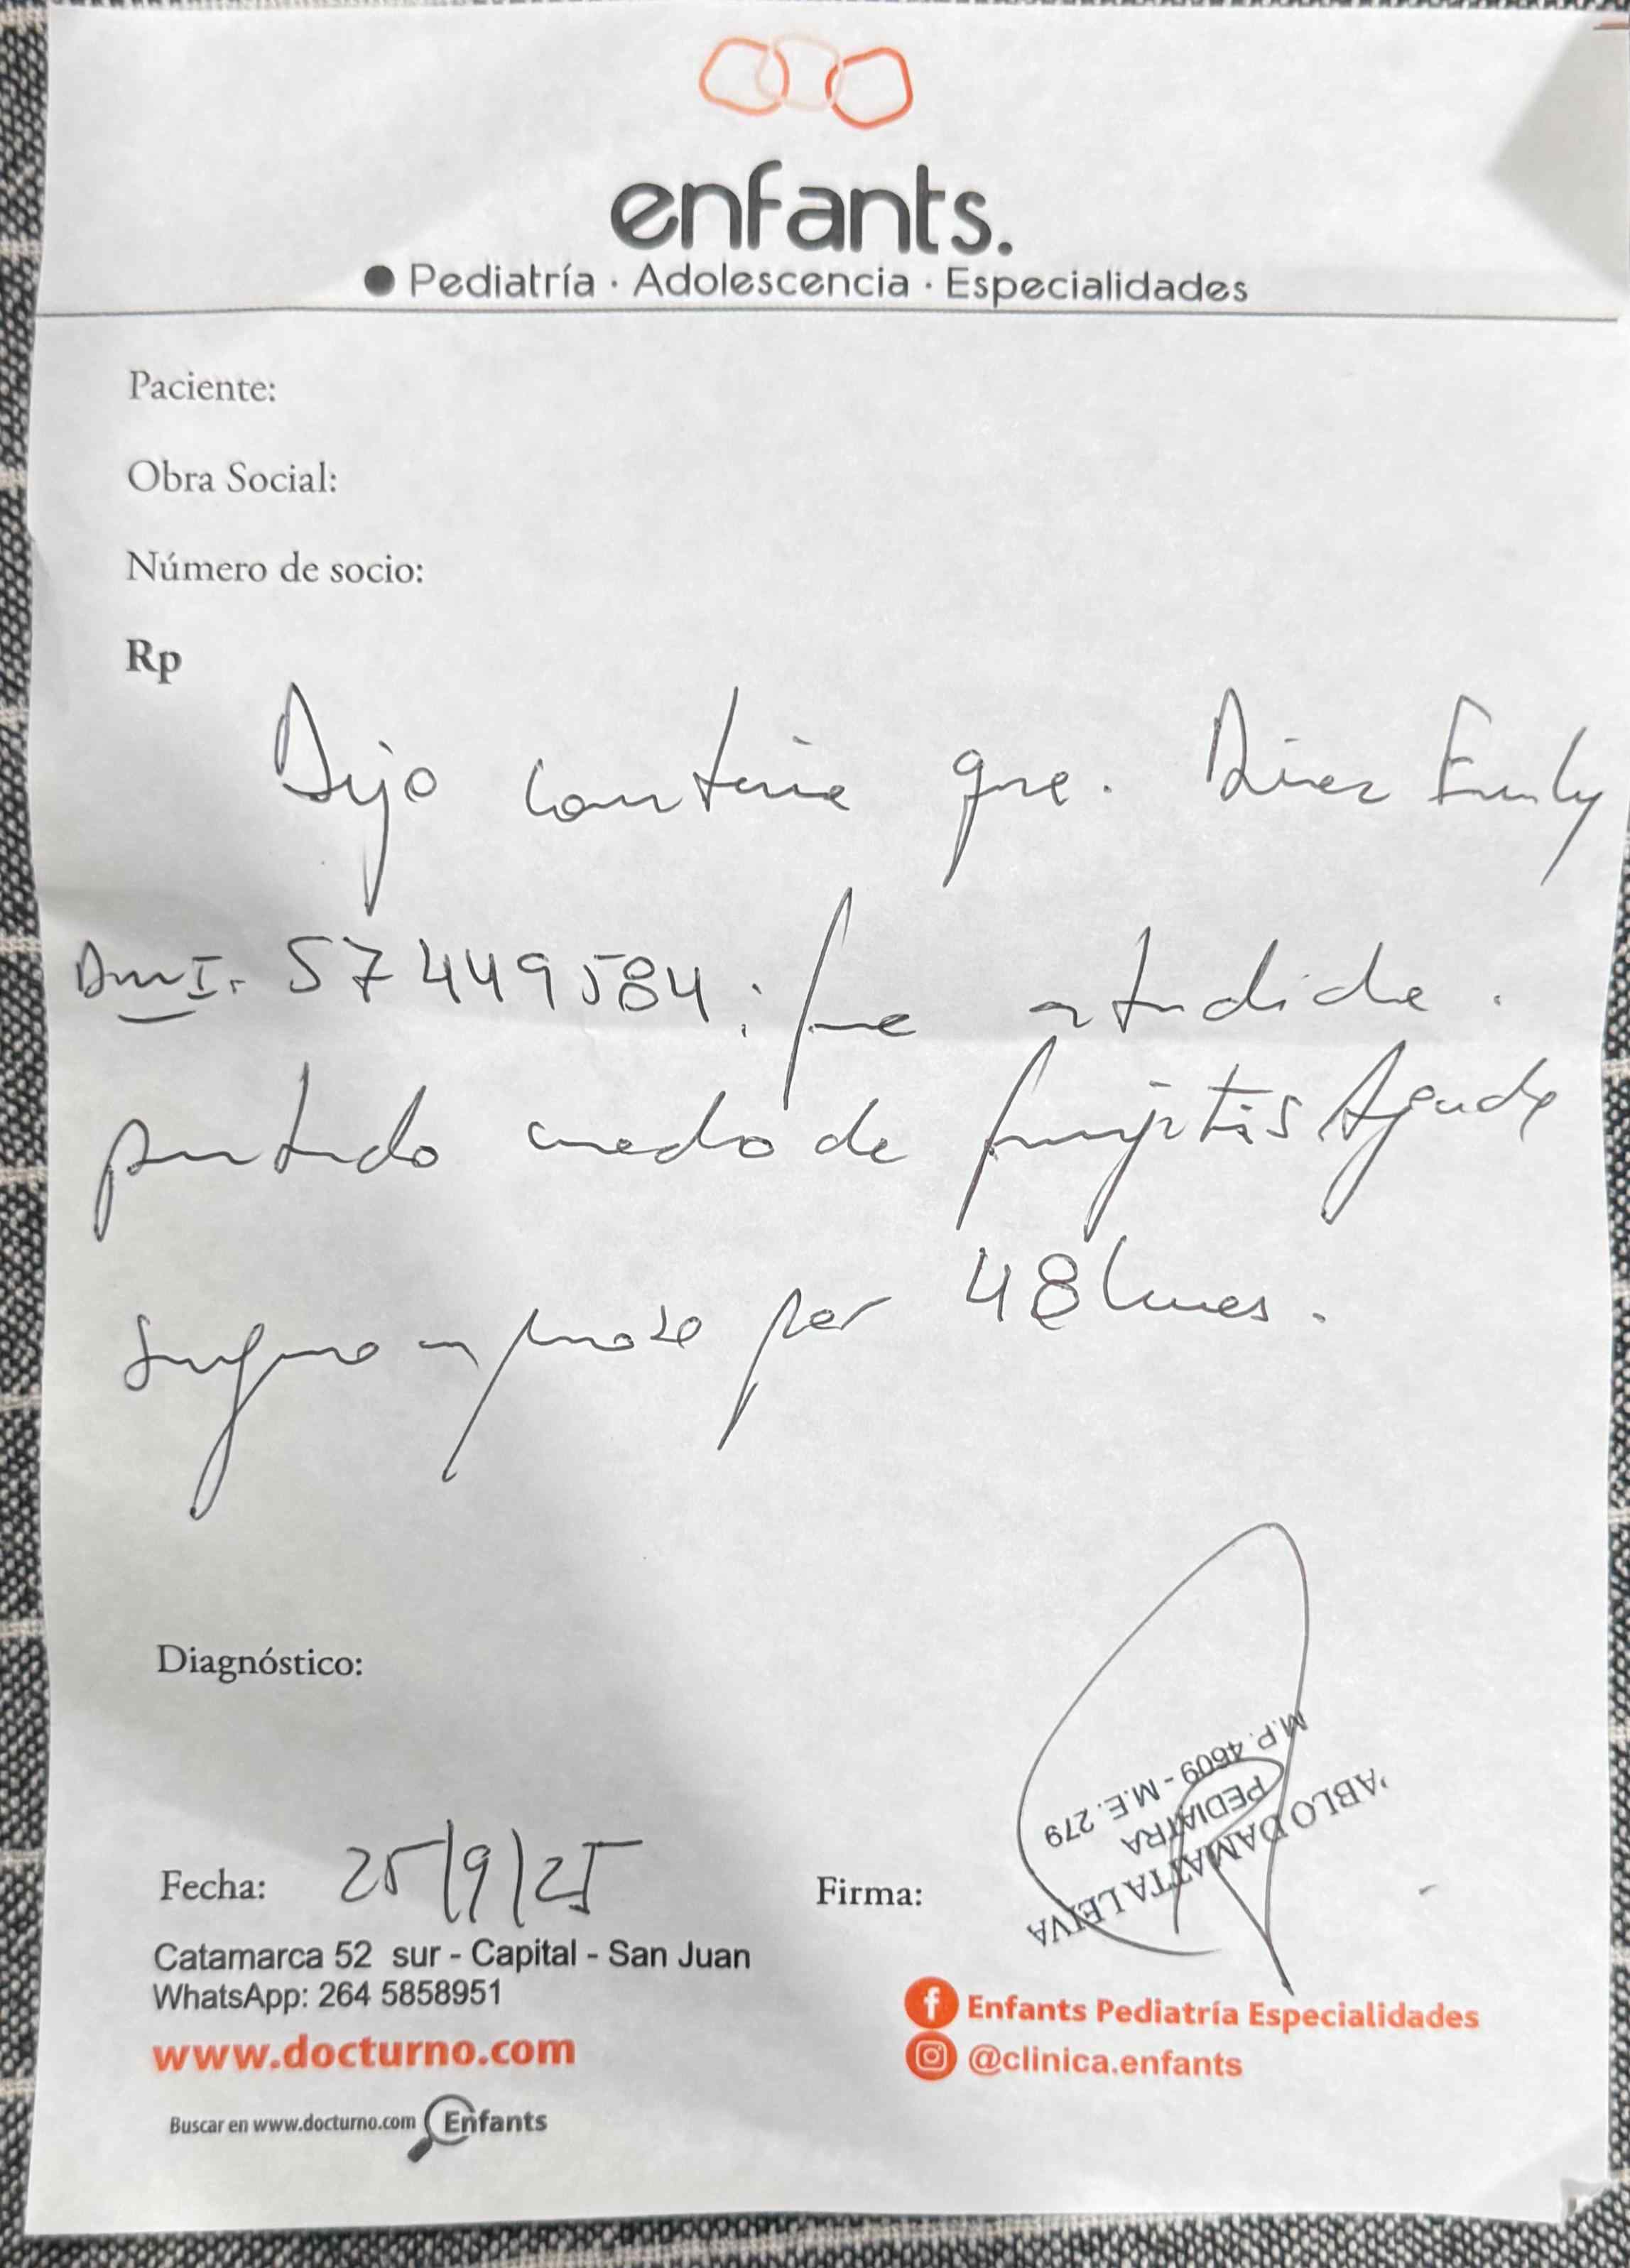 enfants.
Pediatría · Adolescencia · Especialidades
Paciente:
Obra Social:
Número de socio:
Rp
Dejo constancia que. Diaz Emily
DNI. 57449584: fue atendida.
cuadro de faringitis Aguda
Sugiero reposo por 48 horas.
Diagnóstico:
Fecha: 25/9/25
Firma:
PABLO DAMATTA LEIVA
PEDIATRA
M.P. 4609 - M.E. 279
Catamarca 52 sur - Capital - San Juan
WhatsApp: 264 5858951
www.docturno.com
Buscar en www.docturno.com Enfants
Enfants Pediatría Especialidades
@clinica.enfants